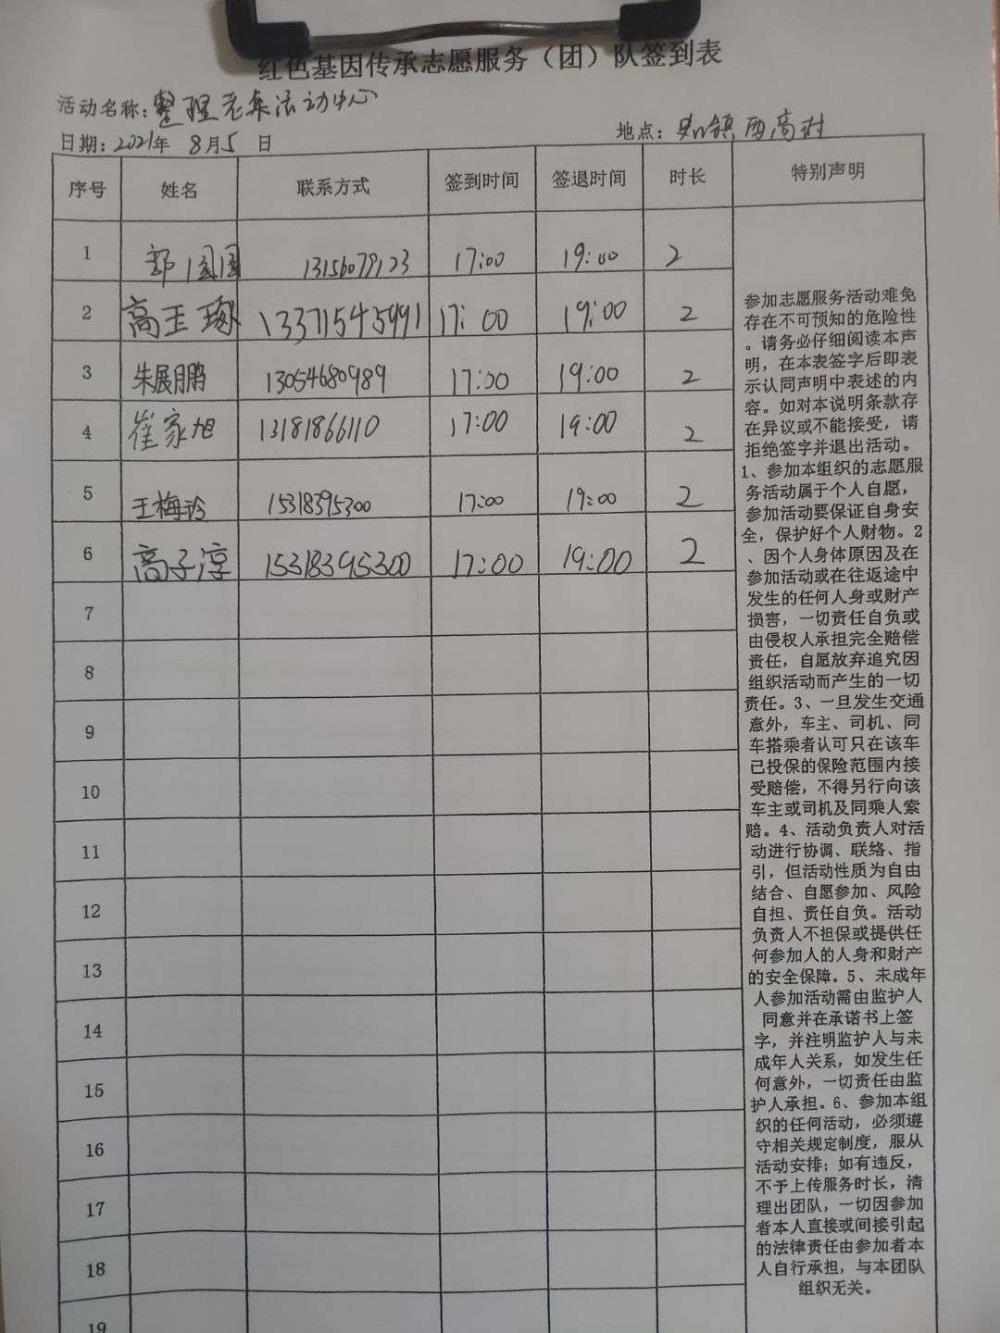 红色基因传承志愿服务（团）队签到表
活动名称：整理老年活动中心
日期：2021年 8月5 日
地点： 镇西高村
序号 姓名 联系方式 签到时间 签退时间 时长 特别声明
1 郭圆圆 13156079123 17:00 19:00 2
2 高玉琢 13371545991 17:00 19:00 2
3 朱展鹏 13054680989 17:00 19:00 2
4 崔家旭 13181866110 17:00 19:00 2
5 王梅玲 15318395300 17:00 19:00 2
6 高子淳 15318395300 17:00 19:00 2
7
8
9
10
11
12
13
14
15
16
17
18
19
参加志愿服务活动难免
存在不可预知的危险性
。请务必仔细阅读本声
明，在本表签字后即表
示认同声明中表述的内
容。如对本说明条款存
在异议或不能接受，请
拒绝签字并退出活动。
1、参加本组织的志愿服
务活动属于个人自愿，
参加活动要保证自身安
全，保护好个人财物。2
、因个人身体原因及在
参加活动或在往返途中
发生的任何人身或财产
损害，一切责任自负或
由侵权人承担完全赔偿
责任，自愿放弃追究因
组织活动而产生的一切
责任。3、一旦发生交通
意外，车主、司机、同
车搭乘者认可只在该车
已投保的保险范围内接
受赔偿，不得另行向该
车主或司机及同乘人索
赔。4、活动负责人对活
动进行协调、联络、指
引，但活动性质为自由
结合、自愿参加、风险
自担、责任自负。活动
负责人不担保或提供任
何参加人的人身和财产
的安全保障。5、未成年
人参加活动需由监护人
同意并在承诺书上签
字，并注明监护人与未
成年人关系，如发生任
何意外，一切责任由监
护人承担。6、参加本组
织的任何活动，必须遵
守相关规定制度，服从
活动安排；如有违反，
不予上传服务时长，清
理出团队，一切因参加
者本人直接或间接引起
的法律责任由参加者本
人自行承担，与本团队
组织无关。